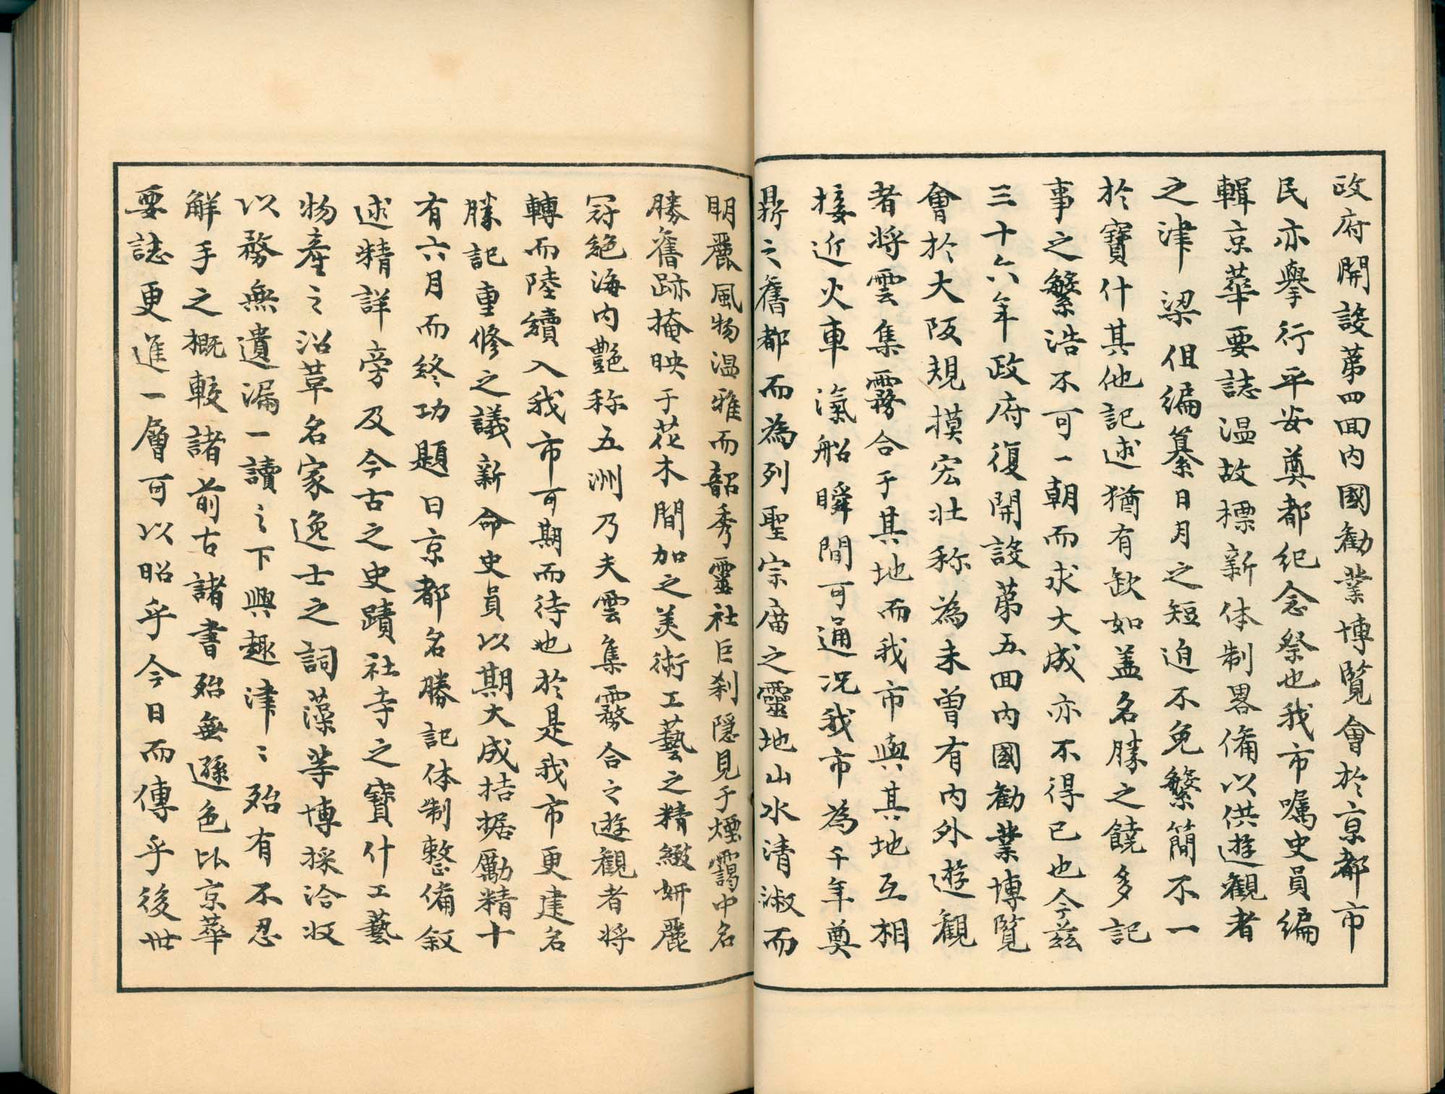 政府開設第四回内國勧業博覧會於京都市
民亦擧行平安奠都紀念祭也我市嘱史員編
輯京華要誌温故標新体制畧備以供遊観者
之津梁但編纂日月之短迫不免繁簡不一
於寶什其他記述猶有缺如盖名勝之饒多記
事之繁浩不可一朝而求大成亦不得已也今茲
三十六年政府復開設第五回内國勧業博覧
會於大阪規摸宏壮称為未曽有内外遊観
者将雲集霧合于其地而我市與其地互相
接近火車滊船瞬間可通况我市為千年奠
鼎之舊都而為列聖宗庿之靈地山水清淑而
明麗風物温雅而韶秀靈社巨刹隠見于煙靄中名
勝舊跡掩映于花木間加之美術工藝之精緻妍麗
冠絶海内艶称五洲乃夫雲集霧合之遊観者将
轉而陸續入我市可期而待也於是我市更建名
勝記重修之議新命史員以期大成拮据勵精十
有六月而終功題曰京都名勝記体制整備叙
述精詳旁及今古之史蹟社寺之寶什工藝
物産之沿革名家逸士之詞藻等博採洽収
以務無遺漏一讀之下興趣津〻殆有不忍
觧手之概較諸前古諸書殆無遜色比京華
要誌更進一層可以昭乎今日而傳乎後世